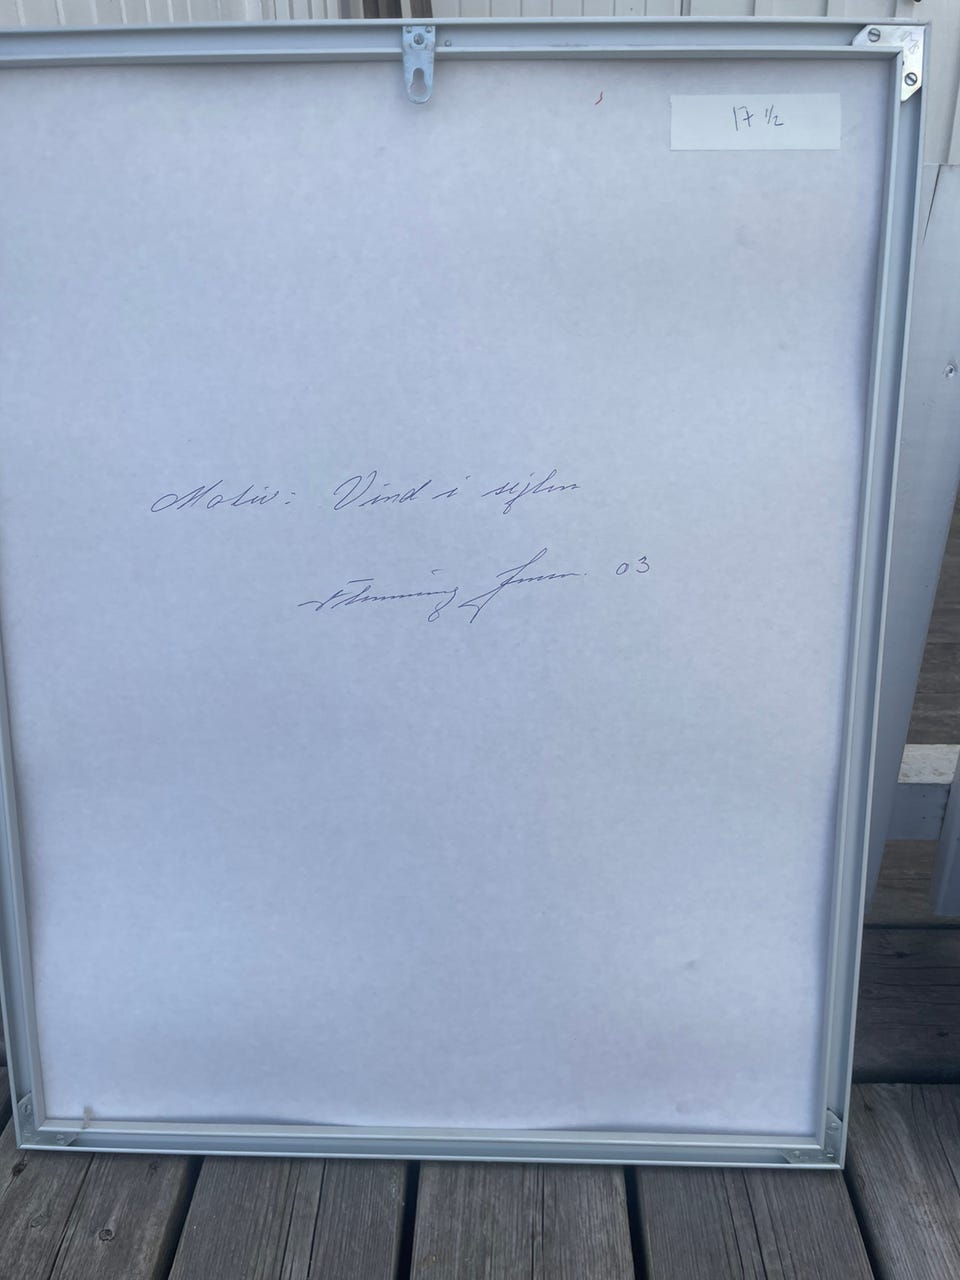 17 1/2
Motiv: Vind i sejlen
Flemming 03